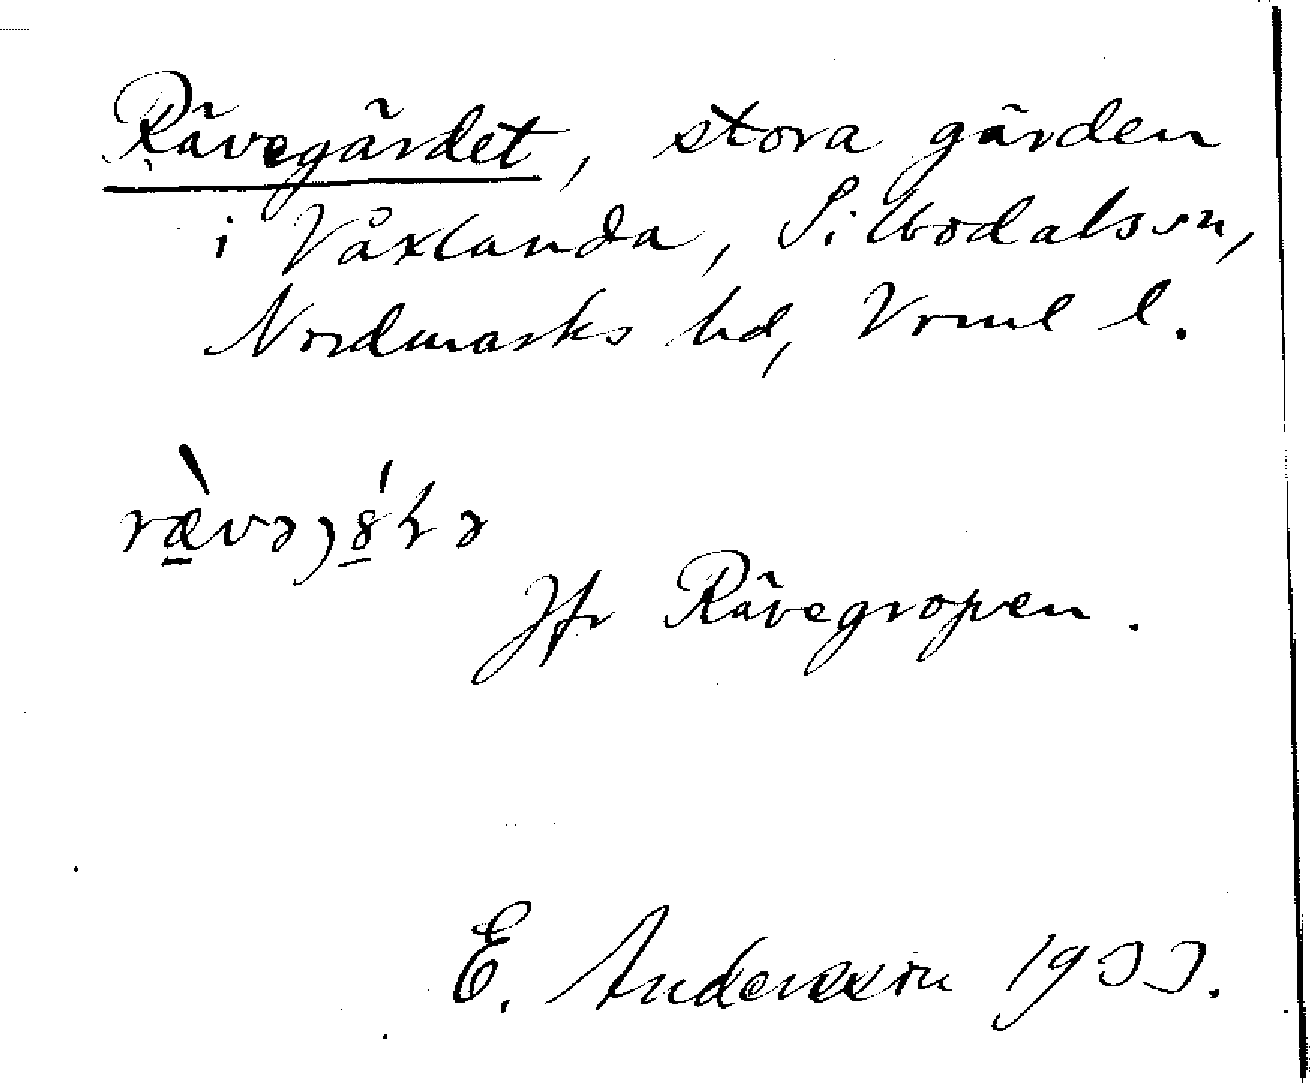 Rävegärdet, stora gärden
i Våxlanda, Silbodals sn,
Nordmarks hd, Vrml l.
Jfr Rävegropen.
E. Andersson 1933.